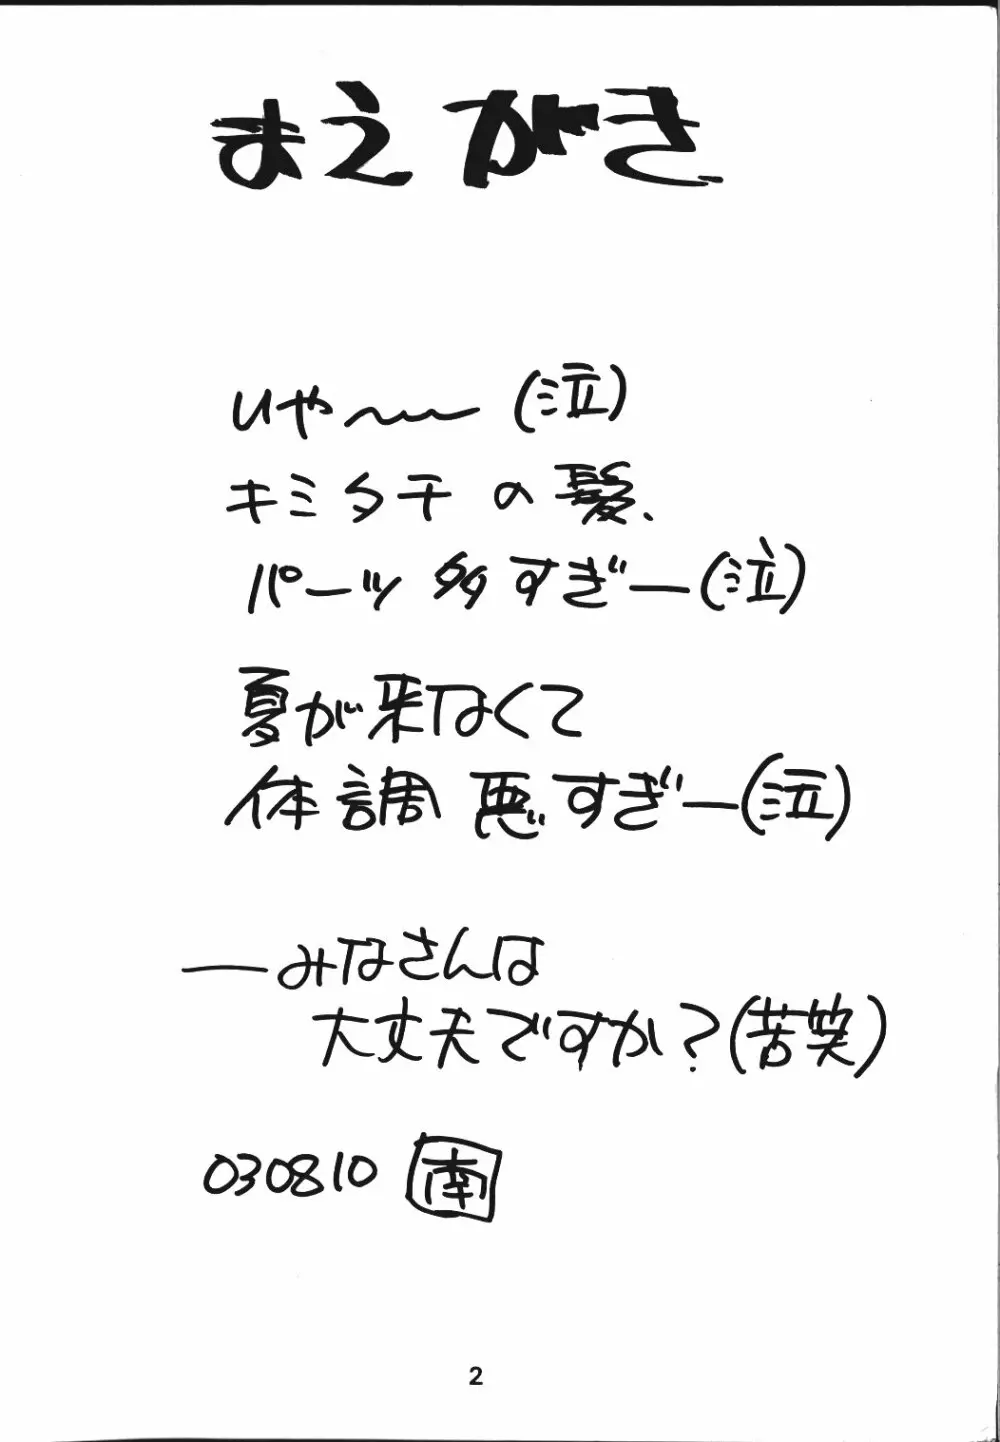 まえがき
いや〜〜(泣)
キミタチの髪、
パーツ多すぎー(泣)
夏が来なくて
体調悪すぎー(泣)
―みなさんは
大丈夫ですか?(苦笑)
030810 南
2